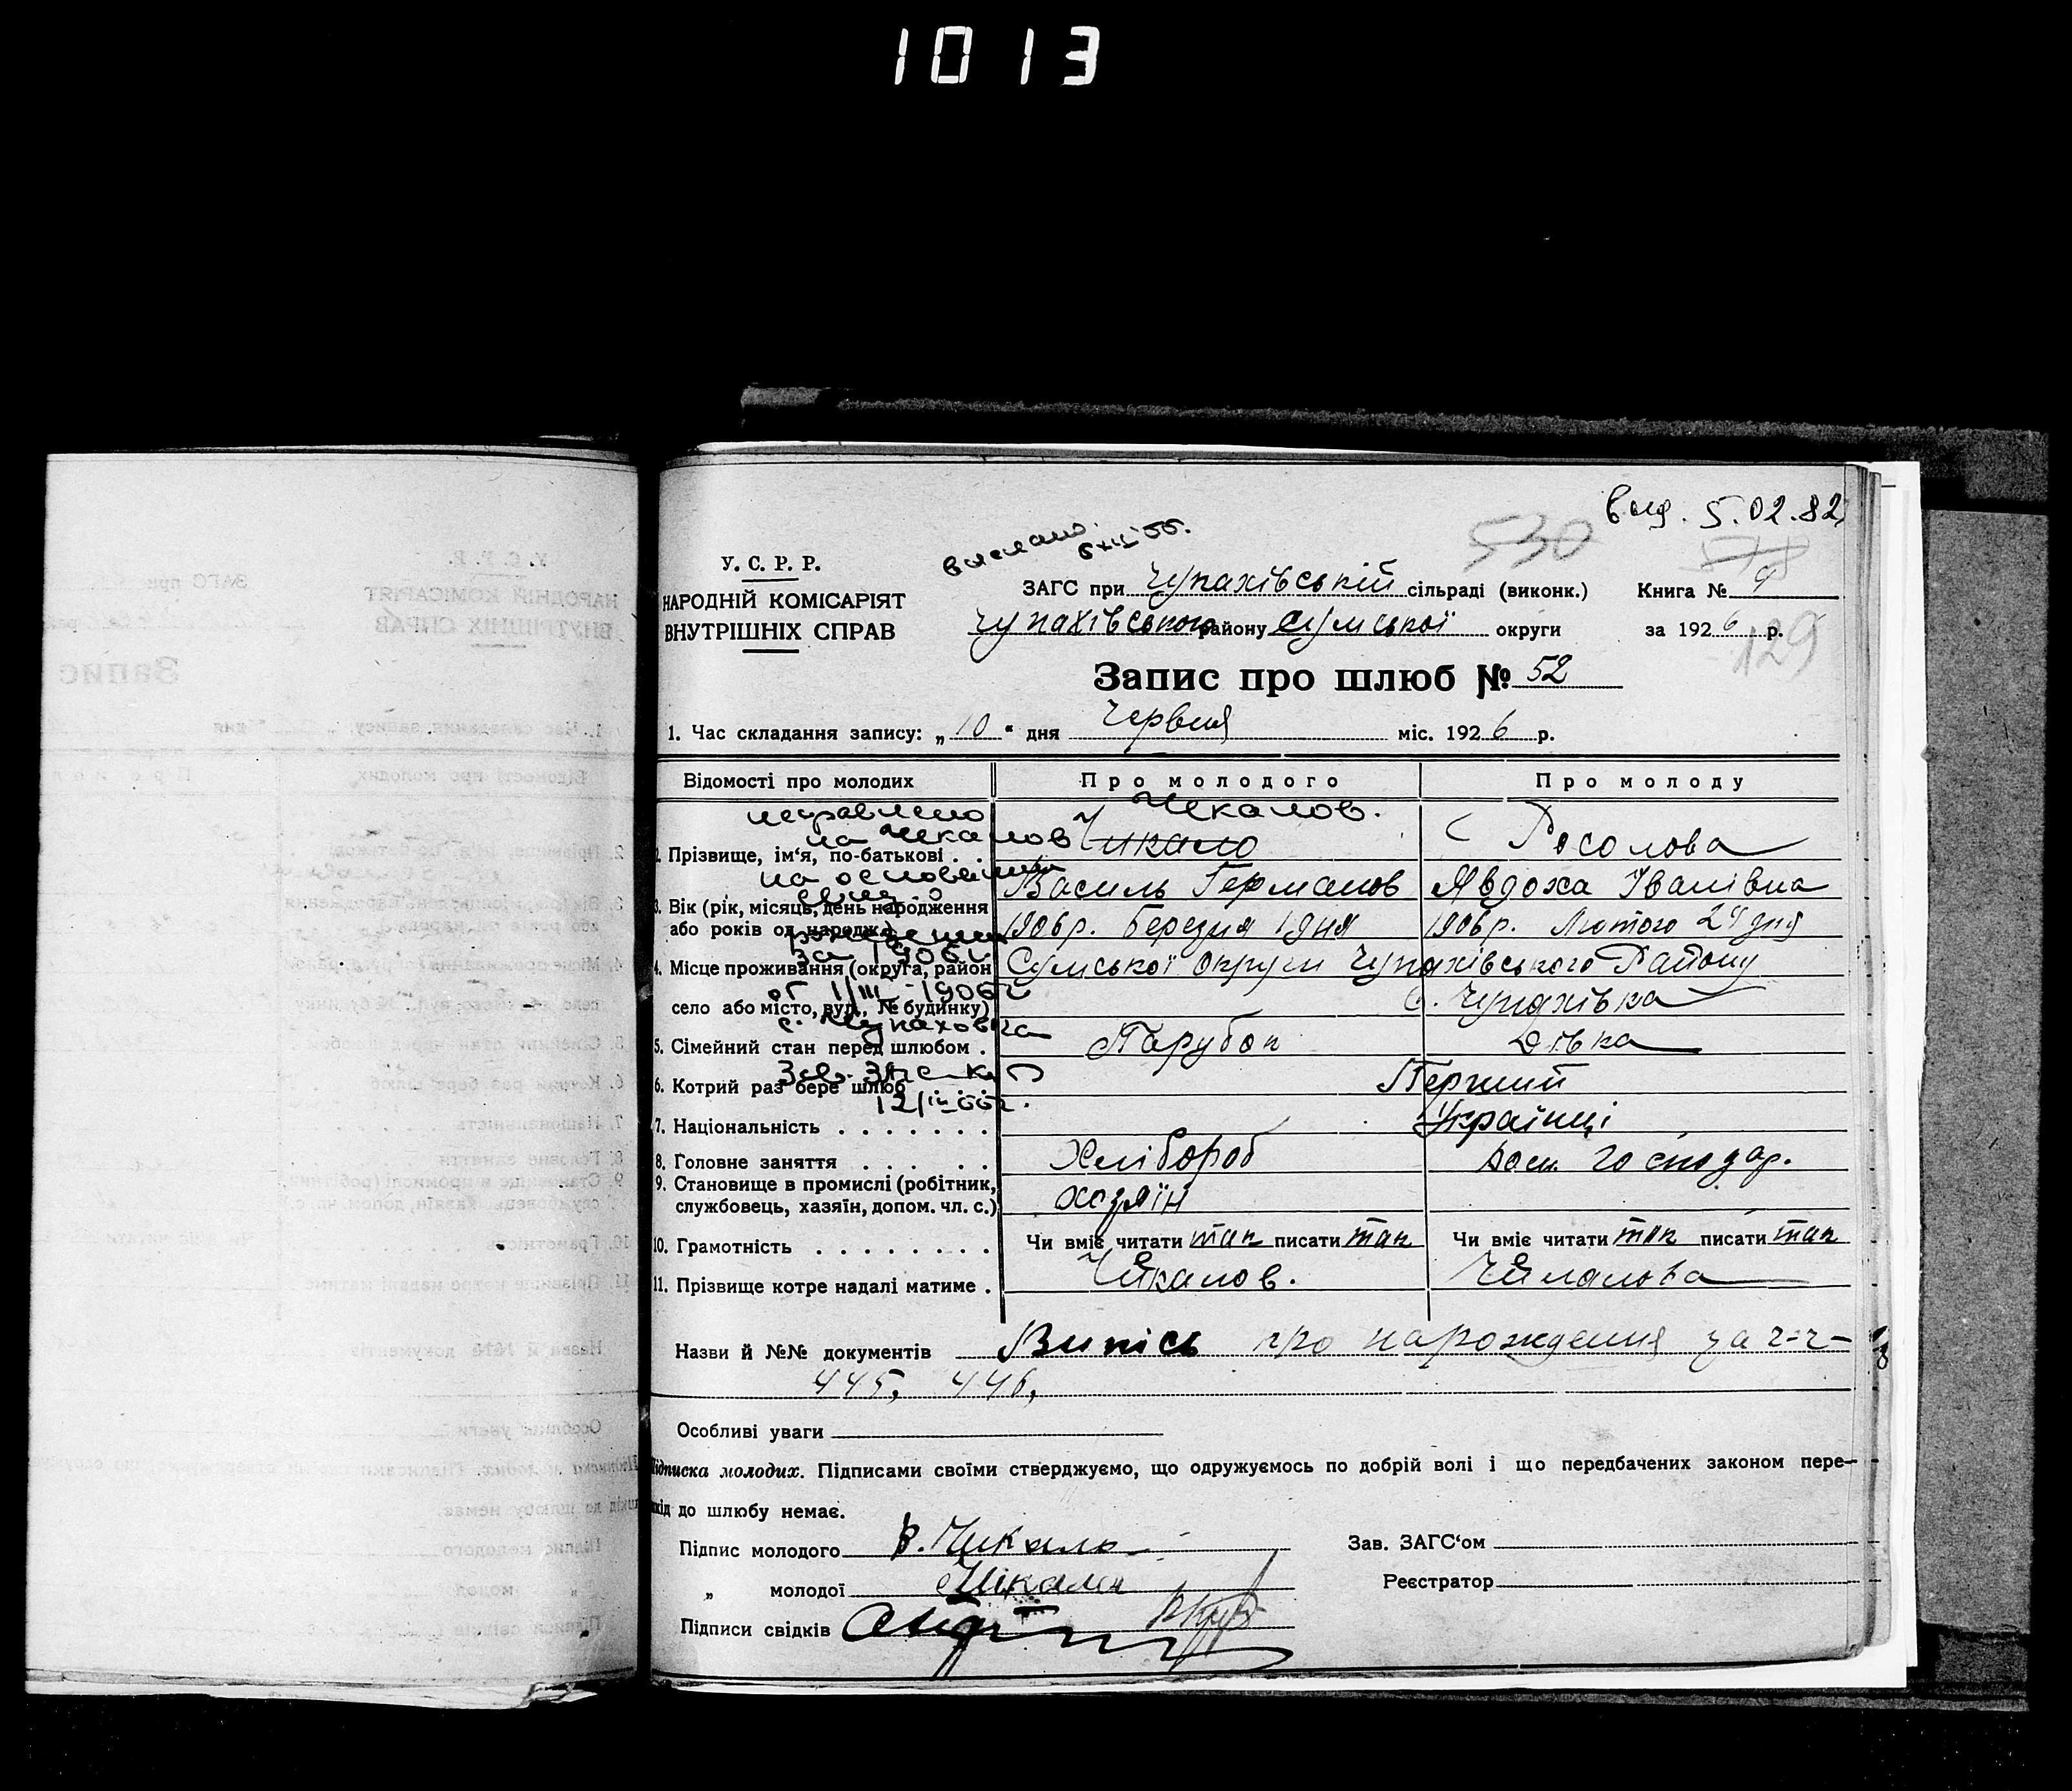 1013
вид. 5.02.82
530
У. С. Р. Р.
НАРОДНІЙ КОМІСАРІЯТ
ВНУТРІШНІХ СПРАВ
ЗАГС при Чупахівській сільраді (виконк.) Книга № 9
Чупахівського району Сумської округи за 1926 р.
129
Запис про шлюб № 52
1. Час складання запису: „10“ дня Червня міс. 1926 р.
Відомості про молодих Про молодого Про молоду
исправлено
на Чекалов
на основании
за 1906 г
от 1/III-1906 г
с. Чупаховка
Чекалов.
2. Прізвище, ім‘я, по-батькові . . Чикало Росолова
Василь Германов Явдоха Іванівна
3. Вік (рік, місяць, день народження
або років од народж.) 1906р. Березня 1 дня 1906р. Лютого 24 дня
4. Місце проживання (округа, район Сумської округи Чупахівського Району
село або місто, вул., № будинку) с. Чупахівка
5. Сімейний стан перед шлюбом . Парубок Дівка
6. Котрий раз бере шлюб Перший
7. Національність . . . . . . . Українці
8. Головне заняття . . . . . Хлібороб дом. господар.
9. Становище в промислі (робітник,
службовець, хазяїн, допом. чл. с.) хозяїн
10. Грамотність . . . . . . . . Чи вміє читати так писати так Чи вміє читати так писати так
11. Прізвище котре надалі матиме . Чекалов. Чекалова
Назви й №№ документів Випісь про нарождения за ч-ч-
445, 446,
Особливі уваги
Підписка молодих. Підписами своїми стверджуємо, що одружуємось по добрій волі і що передбачених законом пере-
шкід до шлюбу немає.
Підпис молодого В. Чикало Зав. ЗАГС‘ом
„ молодої Чікала Реєстратор
Підписи свідків